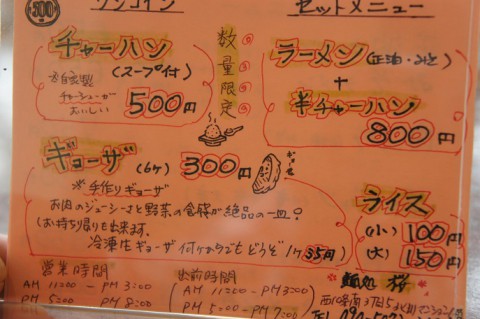 500
ワンコイン
セットメニュー
チャーハン
(スープ付)
自家製
チャーシューが
おいしい
500円
数量限定
ラーメン (正油・みそ)
+
半チャーハン
800円
ギョーザ (6ケ) 300円
※手作りギョーザ
お肉のジューシーさと野菜の食感が絶品の一皿?
(お持ち帰りも出来ます。
冷凍生ギョーザ 何ケからでもどうぞ 1ケ35円)
ライス
(小) 100円
(大) 150円
営業時間
AM 11:00 - PM 3:00
PM 5:00 - PM 9:00
出前時間
AM 11:00 - PM 2:00
PM 5:00 - PM 7:00
麺処 桜